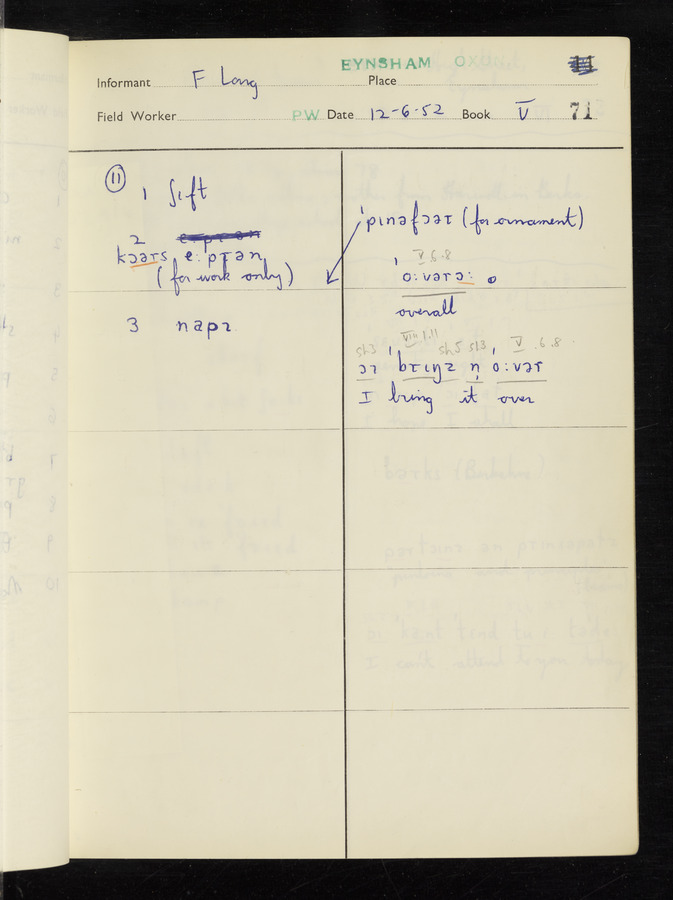 EYNSHAM Oxon
Informant F Long Place
Field Worker PW Date 12-6-52 Book V 71
(11)
1 ʃɪft
2
kɔəɹs e:pɹən
(for work only)
3 napɪ
ˈpɪnəfɔəɹ (for ornament)
V 6.8
ˈo:vəɹɔ:
overall
sh3 VIII 1.11 sh5 sl3 V .6.8
bɹɪŋz n̩ o:vəɹ
I bring it over